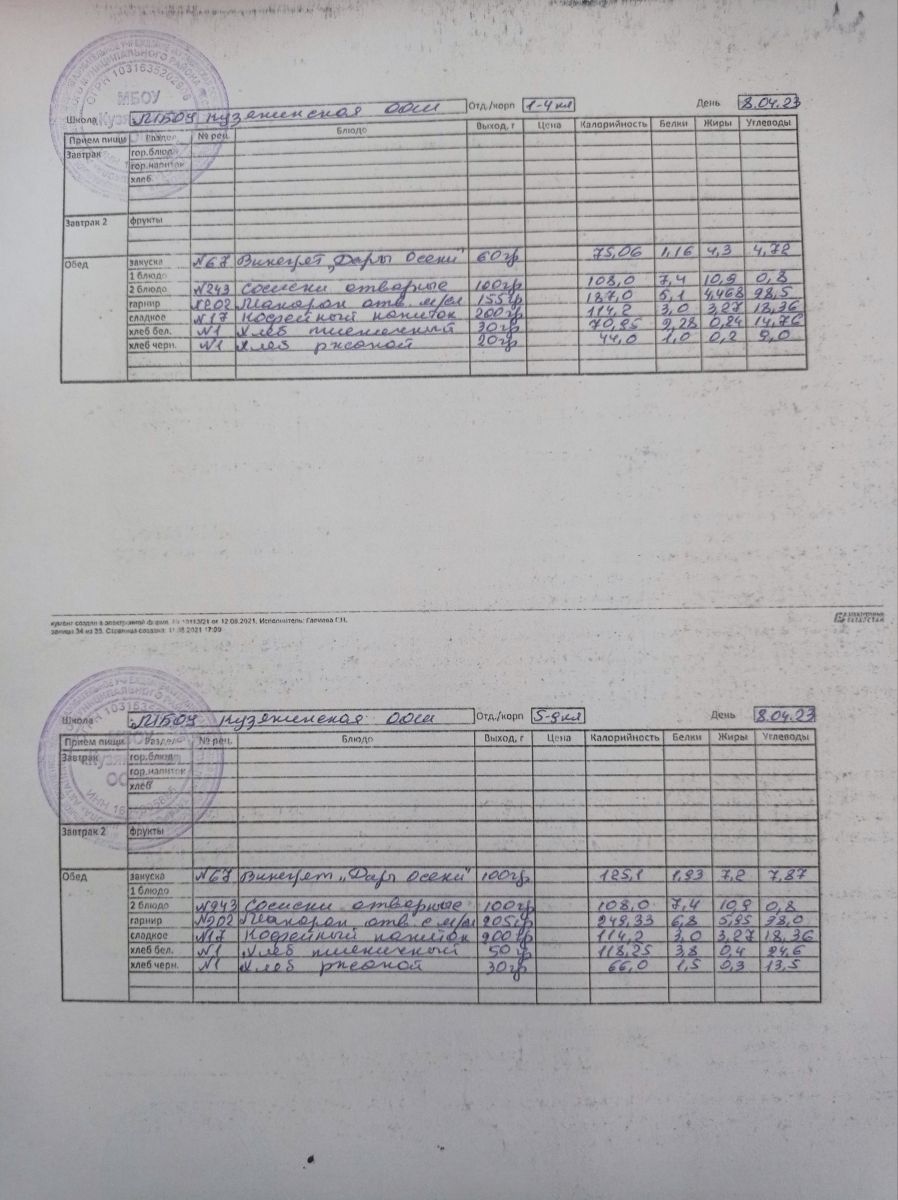 Школа МБОУ Кузякинская ООШ Отд./корп 1-4 кл День 8.04.23
Прием пищи Раздел № рец. Блюдо Выход, г Цена Калорийность Белки Жиры Углеводы
Завтрак гор.блюдо
гор.напиток
хлеб
Завтрак 2 фрукты
Обед закуска №67 Винегрет „Дары Осени" 60гр 75,06 1,16 4,3 4,72
1 блюдо
2 блюдо №243 Сосиски отварные 100гр 108,0 7,4 10,9 0,8
гарнир №202 Макарон отв. м/сл 155гр 187,0 5,1 4,468 28,5
сладкое №17 Кофейный напиток 200гр 114,2 3,0 3,27 18,36
хлеб бел. №1 Хлеб пшеничный 30гр 70,95 2,28 0,24 14,76
хлеб черн. №1 Хлеб ржаной 20гр 44,0 1,0 0,2 9,0
кумент создан в электронной форме. № от 12.08.2021. Исполнитель:
аница 34 из 35. Страница создана: 11.08.2021 17:00
ЭЛЕКТРОННЫЙ
ТАТАРСТАН
Школа МБОУ Кузякинская ООШ Отд./корп 5-9 кл День 8.04.23
Прием пищи Раздел № рец. Блюдо Выход, г Цена Калорийность Белки Жиры Углеводы
Завтрак гор.блюдо
гор.напиток
хлеб
Завтрак 2 фрукты
Обед закуска №67 Винегрет „Дары Осени" 100гр 125,1 1,93 7,2 7,87
1 блюдо
2 блюдо №243 Сосиски отварные 100гр 108,0 7,4 10,9 0,8
гарнир №202 Макарон отв. с м/сл 205гр 249,33 6,8 5,95 38,0
сладкое №17 Кофейный напиток 200гр 114,2 3,0 3,27 18,36
хлеб бел. №1 Хлеб пшеничный 50гр 118,25 3,8 0,4 24,6
хлеб черн. №1 Хлеб ржаной 30гр 66,0 1,5 0,3 13,5